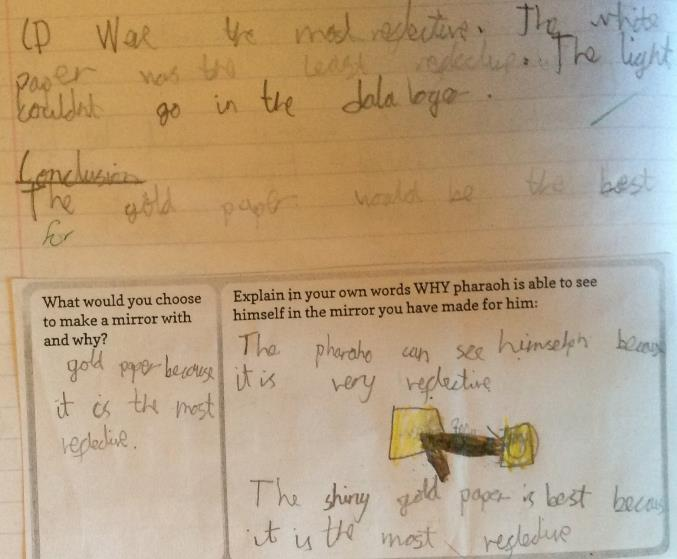 CD Wer the most reflective. The white
paper was the least reflective. The light
Couldnt go in the data loger.
Conclusion
The gold paper would be the best
for
What would you choose
to make a mirror with
and why?
gold paper because
it is the most
reflective.
Explain in your own words WHY pharaoh is able to see
himself in the mirror you have made for him:
The pharaho can see himselph because
it is very reflective
The shiny gold paper is best because
it is the most reslective